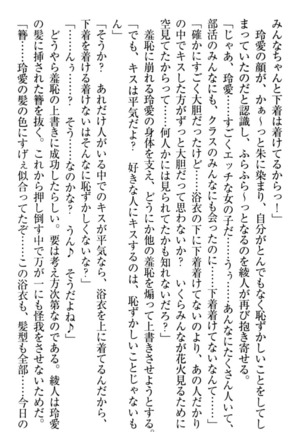 みんなちゃんと下着は着てるからっ！」
　玲愛の顔が、かぁ～っと朱に染まり、自分がとんでもなく恥ずかしいことをしてし
まっていたのだと認識し、ふらふら～っとなるのを綾人が再び抱き寄せる。
「じゃあ、玲愛……すごくエッチな女の子だ……うぅ……あんなにたくさん人いて、
部活のみんなにも、クラスのみんなにも会ったのに……下着着けてないなんて……」
「確かにすごく大胆だったけど……浴衣の下に下着着けてないのより、あの人だかり
の中でキスした方がずっと大胆って思わないか？　いくらみんなが花火見るために
空見てたからって……何人かには見られてたかも知れないだろ？」
　羞恥に崩れる玲愛の身体を支え、どうにか他の羞恥を煽って上書きさせてしまう。
「でも、キスは平気だよ？　好きな人にキスするのは、恥ずかしいことじゃないも
ん」
「そうか？　あれだけ人がいる中でのキスが平気なら、浴衣を上に着てるんだから、
下着を着ける着けないはそんなに恥ずかしくないな？」
「……え？　そう……なのかな？　うん♪　そうだよね♪」
　どうやら羞恥の上書きに成功したらしい。要は考え方次第なのである。綾人は玲愛
の髪に挿された簪を抜く。これから押し倒す中で万が一にも怪我をさせないためだ。
「簪……玲愛の髪の色にすげぇ似合ってたぞ……この浴衣も、髪型も全部……今日の